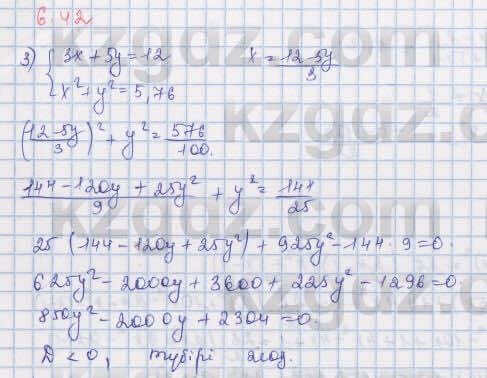 6.42
3) { 3x + 5y = 12      x = (12-5y)/3
x² + y² = 5,76
((12-5y)/3)² + y² = 576/100.
(144 - 120y + 25y²)/9 + y² = 144/25
25 (144 - 120y + 25y²) + 9·25y² - 144 · 9 = 0.
625y² - 2000y + 3600 + 225y² - 1296 = 0
850y² - 2000y + 2304 = 0.
D < 0, түбірі жоқ.
kzgdz.com